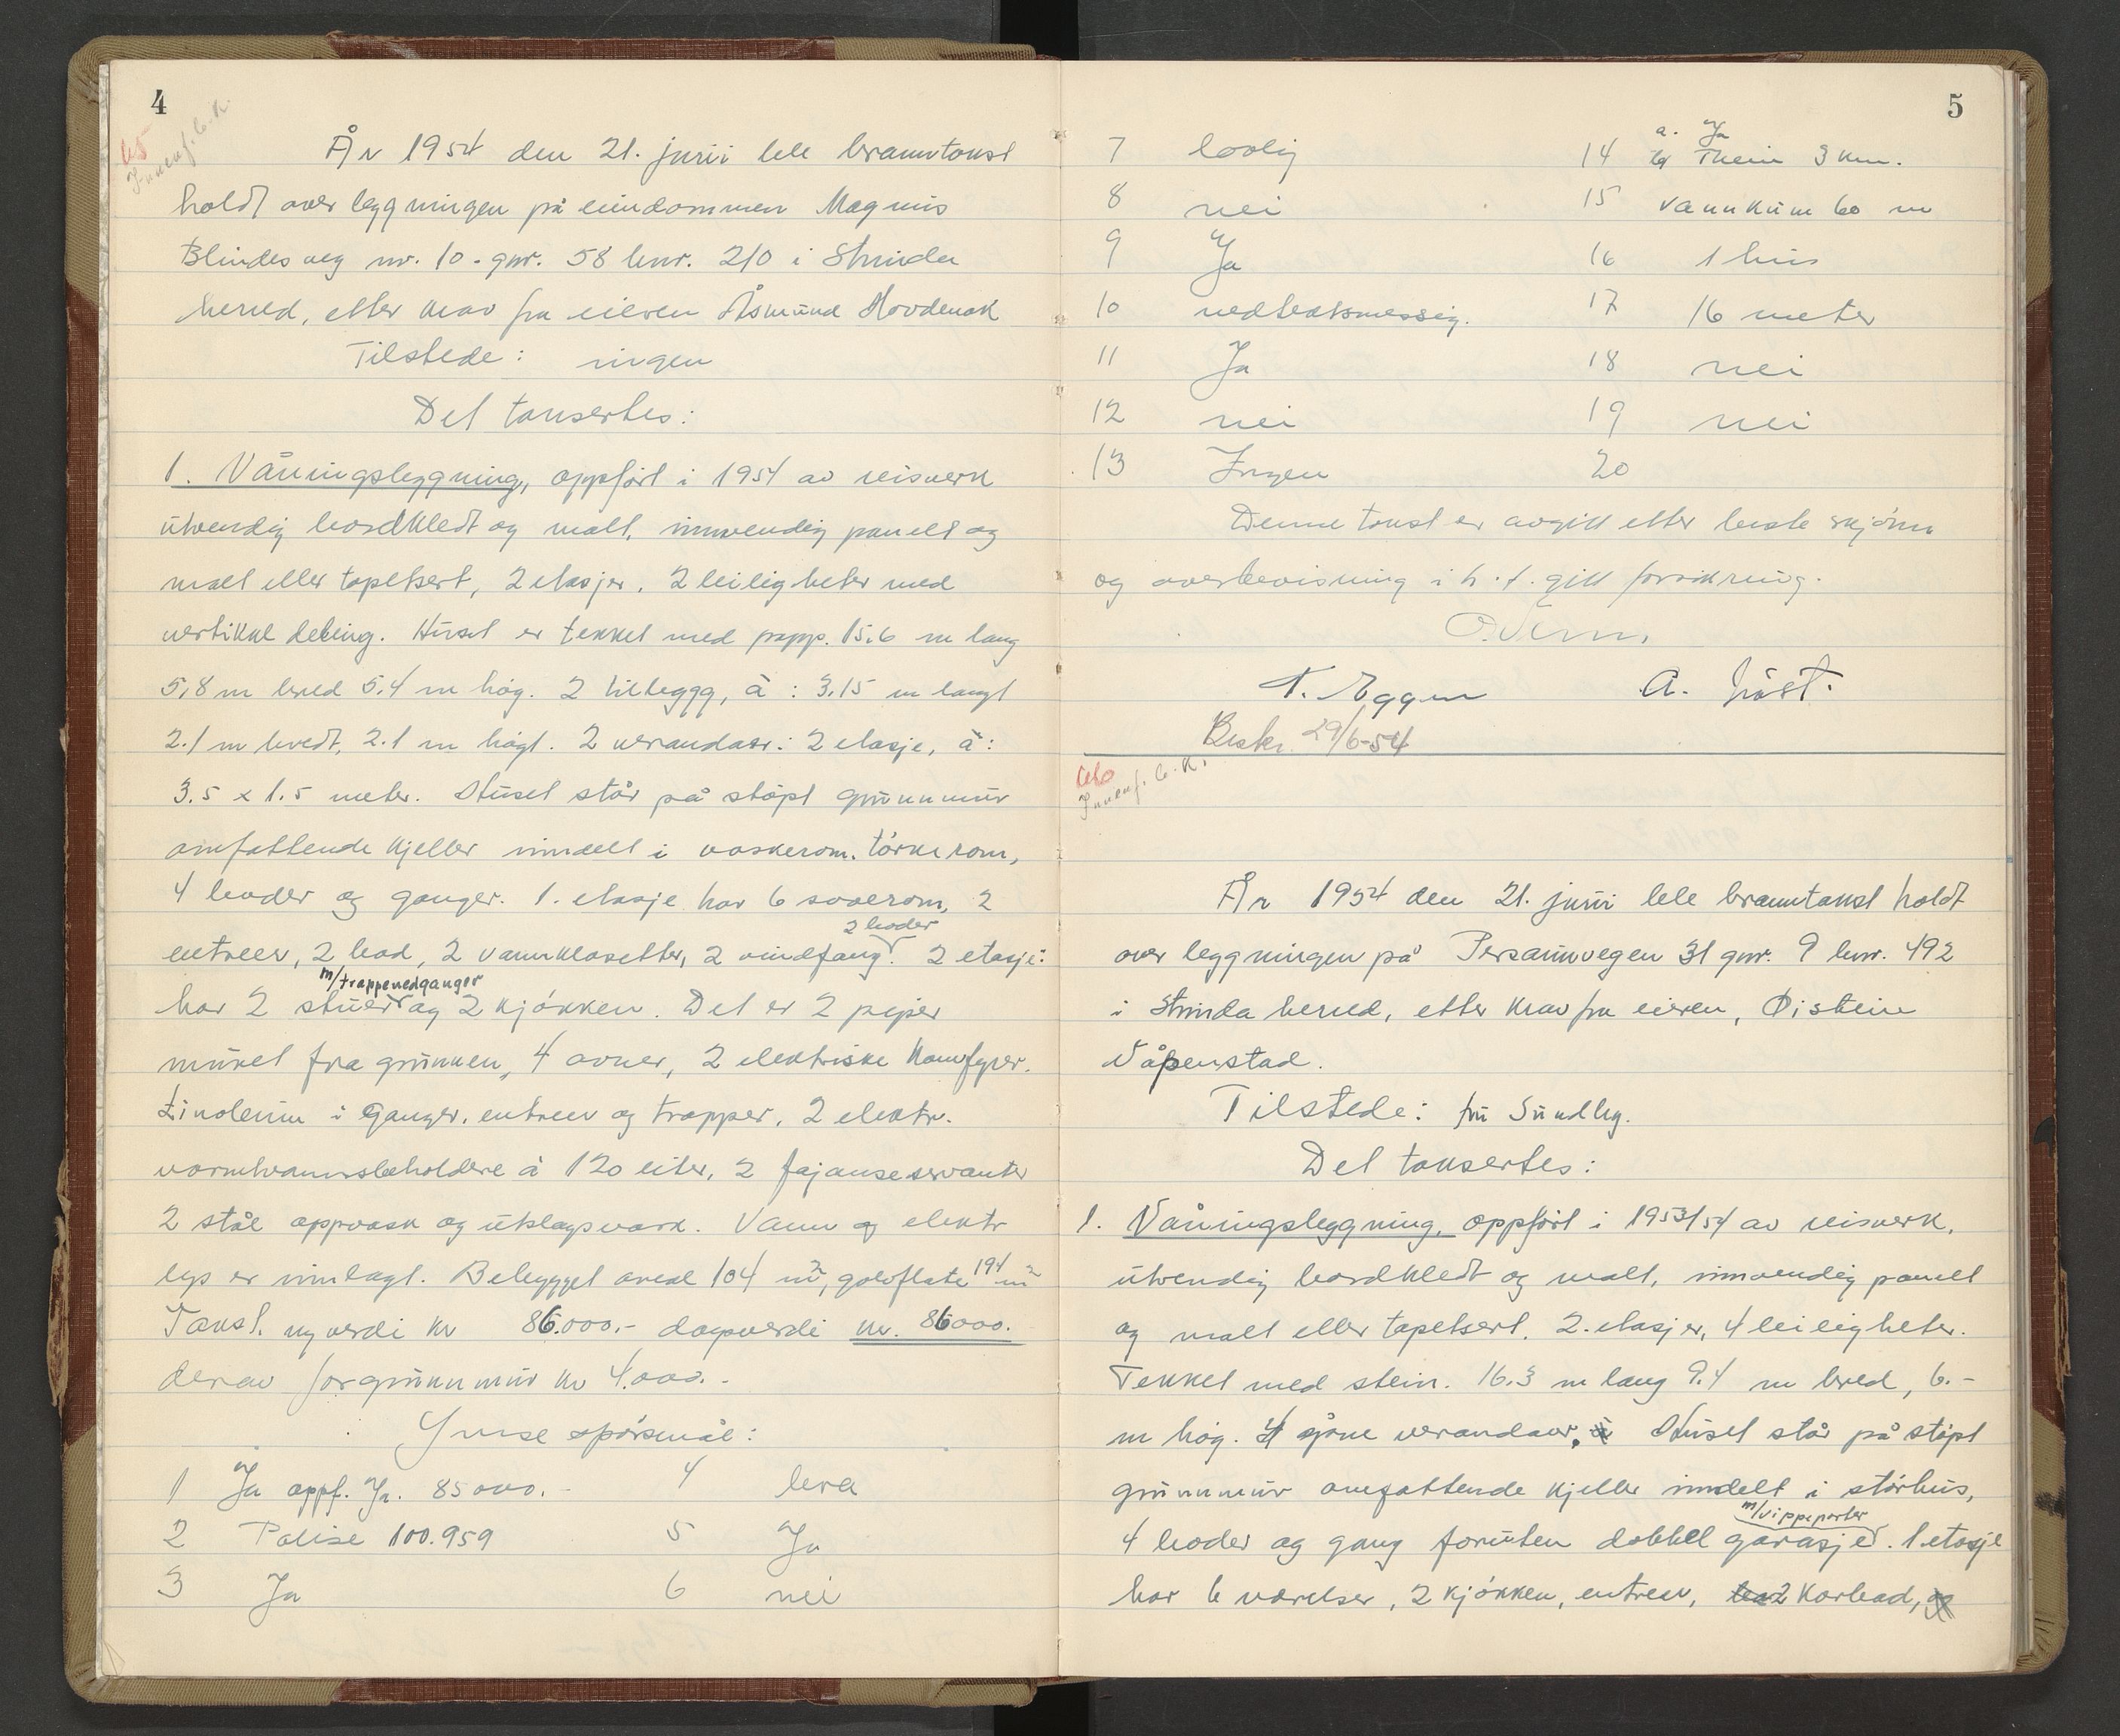 4
65
Innenf. b.k.
År 1954 den 21. juni ble branntakst
holdt over byggningen på eiendommen Magnus
Blindes veg nr. 10 - gnr. 58 bnr. 210 i Strinda
herred, etter krav fra eieren Åsmund Hovdenak
Tilstede: ingen
Det taksertes:
1. Våningsbyggning, oppført i 1954 av reisverk
utvendig bordkledt og malt, innvendig panelt og
malt eller tapetsert, 2 etasjer. 2 leiligheter med
vertikal deling. Huset er tekket med papp. 15.6 m lang
5,8 m bred 5.4 m høg. 2 tilbygg, à: 3.15 m langt
2.1 m bredt, 2.1 m høgt. 2 verandaer: 2 etasje, à:
3.5 x 1.5 meter. Huset står på støpt grunnmur
omfattende kjeller inndelt i vaskerom. tørkerom,
4 boder og ganger. 1. etasje har 6 soverom, 2
2 boder
entreer, 2 bad, 2 vannklosetter, 2 vindfang. 2 etasje:
m/trappenedganger
har 2 stuer og 2 kjøkken. Det er 2 piper
muret fra grunnen, 4 ovner, 2 elektriske komfyrer.
Linoleum i ganger, entreer og trapper, 2 elektr.
varmtvannsbeholdere à 120 liter, 2 fajanseservanter
2 stål oppvask og utslagsvask. Vann og elektr
lys er innlagt. Bebygget areal 104 m², golvflate 194 m²
Takst. nyverdi kr 86.000.- dagsverdi kr. 86000.
derav for grunnmur kr 4.000.-
Ymse spørsmål:
1 Ja oppf. Jr. 85000.- 4 bra
2 Polise 100.959 5 Ja
3 Ja 6 nei
5
7 lovlig 14 a. Ja b Rhein 3 km.
8 nei 15 vannkum 60 m
9 Ja 16 1 hus
10 vedtektsmessig. 17 16 meter
11 Ja 18 nei
12 nei 19 nei
13 Ingen 20
Denne takst er avgitt etter beste skjønn
og overbevisning i h.t. gitt forsikring.
T. Eggen A. Høst.
Beskr. 29/6-54
66
Innenf. b.k.
År 1954 den 21. juni ble branntakst holdt
over byggningen på Persaunvegen 31 gnr. 9 bnr. 492
i Strinda herred, etter krav fra eieren, Øistein
Våpenstad.
Tilstede: fru Sundby.
Det taksertes:
1. Våningsbyggning, oppført i 1953/54 av reisverk,
utvendig bordkledt og malt, innvendig panelt
og malt eller tapetsert. 2. etasjer, 4 leiligheter.
Tekket med stein. 16.3 m lang 9.4 m bred, 6.-
m høg. 4 åpne verandaer. Huset står på støpt
grunnmur omfattende kjeller inndelt i størhus,
m/vippeporter
4 boder og gang foruten dobbel garasje. 1. etasje
har 6 værelser, 2 kjøkken, entreer, 2 karbad, og